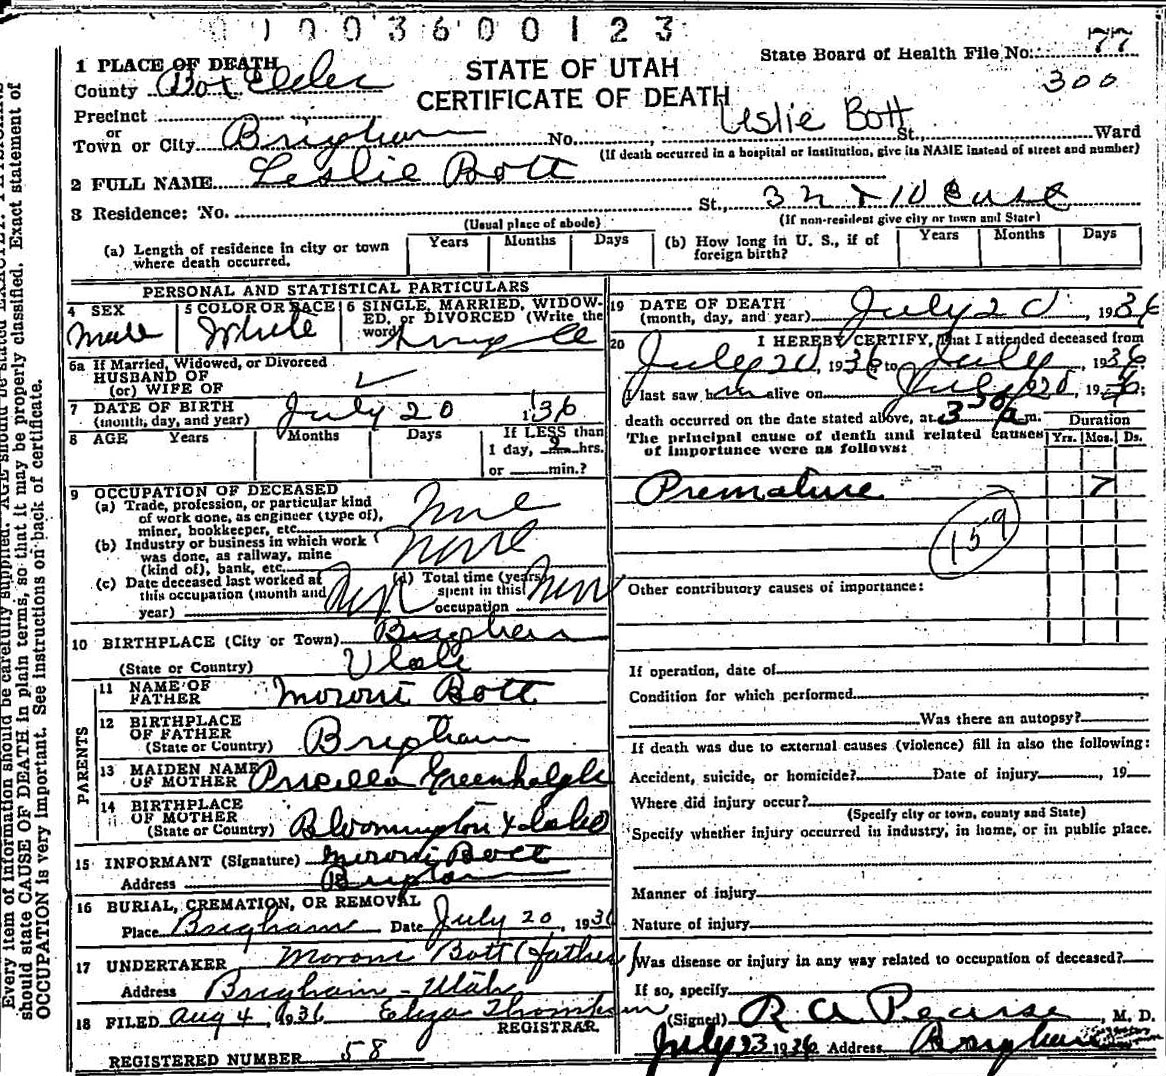 0 1 0 0 3 6 0 0 1 2 3
State Board of Health File No. 77
300
STATE OF UTAH
CERTIFICATE OF DEATH
1 PLACE OF DEATH
County Box Elder
Precinct
or
Town or City Brigham No. Leslie Bott St. Ward
(If death occurred in a hospital or institution, give its NAME instead of street and number)
2 FULL NAME Leslie Bott
3 Residence: No. St., 3 N & 10 East
(Usual place of abode) (If non-resident give city or town and State)
(a) Length of residence in city or town where death occurred. Years Months Days (b) How long in U. S., if of foreign birth? Years Months Days
PERSONAL AND STATISTICAL PARTICULARS
4 SEX Male
5 COLOR OR RACE White
6 SINGLE, MARRIED, WIDOWED, or DIVORCED (Write the word) Single
6a If Married, Widowed, or Divorced
HUSBAND OF
(or) WIFE OF
7 DATE OF BIRTH
(month, day, and year) July 20 1936
8 AGE Years Months Days If LESS than
1 day, 2 hrs.
or min.?
9 OCCUPATION OF DECEASED
(a) Trade, profession, or particular kind
of work done, as engineer (type of),
miner, bookkeeper, etc. None
(b) Industry or business in which work
was done, as railway, mine
(kind of), bank, etc. None
(c) Date deceased last worked at
this occupation (month and
year)
(d) Total time (years)
spent in this
occupation
10 BIRTHPLACE (City or Town) Brigham
(State or Country) Utah
PARENTS
11 NAME OF
FATHER Moroni Bott
12 BIRTHPLACE
OF FATHER
(State or Country) Brigham
13 MAIDEN NAME
OF MOTHER Pricella Greenhalgh
14 BIRTHPLACE
OF MOTHER
(State or Country) Bloomington Idaho
15 INFORMANT (Signature) Moroni Bott
Address Brigham
16 BURIAL, CREMATION, OR REMOVAL
Place Brigham Date July 20, 1936
17 UNDERTAKER Moroni Bott (father)
Address Brigham - Utah
18 FILED Aug 4, 1936 Eliza Thompson
REGISTRAR.
REGISTERED NUMBER 58
19 DATE OF DEATH
(month, day, and year) July 20, 1936
20 I HEREBY CERTIFY, That I attended deceased from
July 20, 1936 to July, 1936
I last saw him alive on July 20, 1936;
death occurred on the date stated above, at 3 30 a m.
The principal cause of death and related causes
of importance were as follows:
Duration
Yrs. Mos. Ds.
Premature 7
159
Other contributory causes of importance:
If operation, date of
Condition for which performed
Was there an autopsy?
If death was due to external causes (violence) fill in also the following:
Accident, suicide, or homicide? Date of injury, 19
Where did injury occur?
(Specify city or town, county and State)
Specify whether injury occurred in industry, in home, or in public place.
Manner of injury
Nature of injury
Was disease or injury in any way related to occupation of deceased?
If so, specify
(Signed) R A Pearse, M. D.
July 23 1936 Address Brigham
Every item of information should be carefully supplied. AGE should be stated EXACTLY.
should state CAUSE OF DEATH in plain terms, so that it may be properly classified. Exact statement of
OCCUPATION is very important. See instructions on back of certificate.